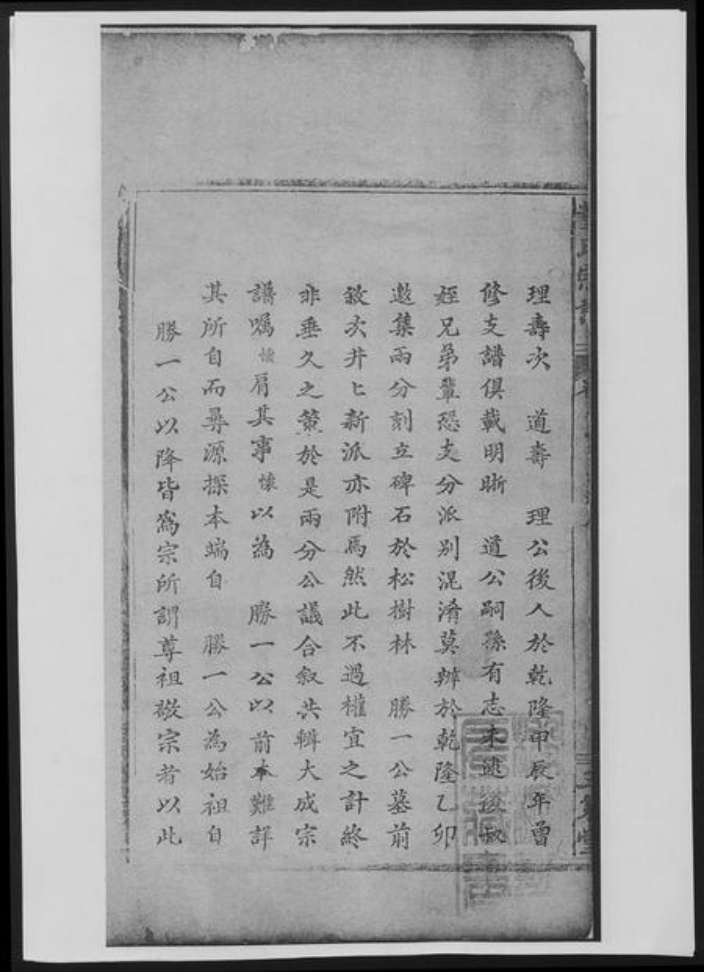 理壽次　道壽　理公後人於乾隆甲辰年曾
修支譜俱載明晰　道公嗣孫有志未逮後叔
姪兄弟輩恐支分派別混淆莫辦於乾隆乙卯
邀集兩分刻立碑石於松樹林　勝一公墓前
敘次井匕新派亦附焉然此不過權宜之計終
非垂久之策於是兩分公議合叙共輯大成宗
譜囑懐肩其事懐以為　勝一公以前本難詳
其所自而尋源探本端自　勝一公為始祖自
勝一公以降皆為宗所謂尊祖敬宗者以此